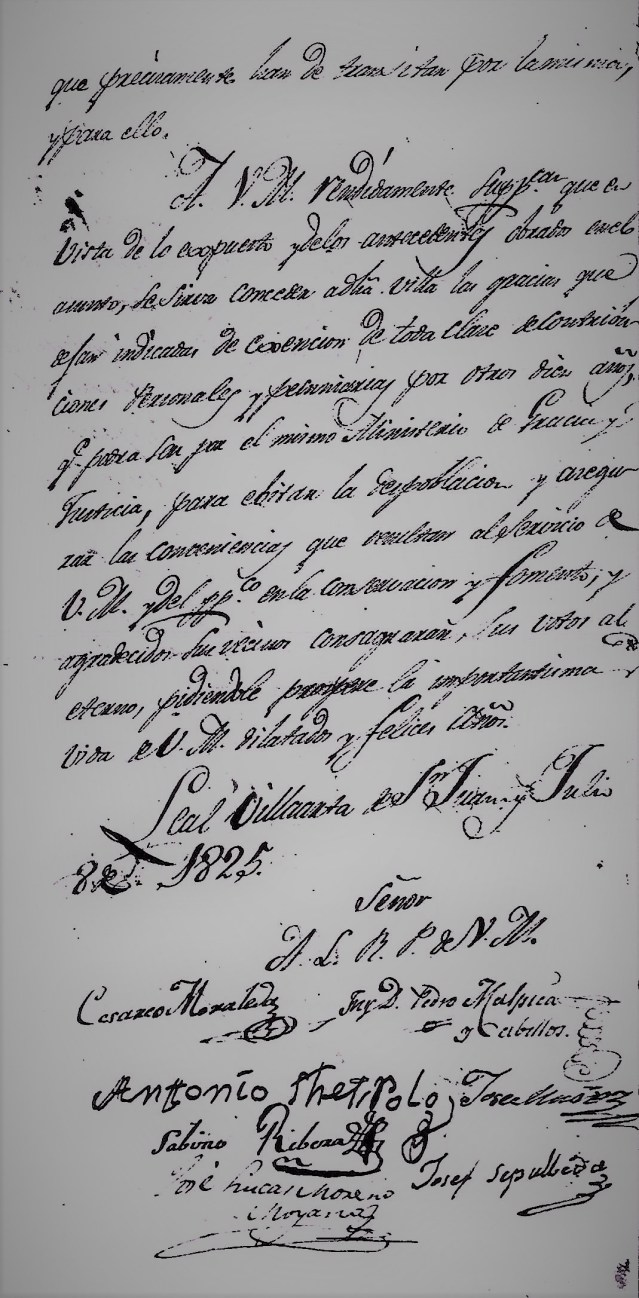 que precisamente han de transitar por la misma,
y para ello.
A V. M. rendidamente supp.can que en
vista de lo expuesto y delos antecedentes obrados en el
asunto, se sirva conceder adha. villa las gracias que
dejan indicadas de exencion de toda clase de contribu
ciones Personales y pecuniarias por otros diez años,
q.e podra ser por el mismo Ministerio de Gracia y
Justicia, para ebitar la despoblacion y asegu
rar las conveniencias que resultan al servicio de
V. M. y del pp.co en la conservacion y fomento, y
agradecidos sus vecinos consagraran sus votos al
eterno, pidiendole prospere la importantisima
vida de V. M. dilatados y felices años.
Leal Villarta de S.n Juan y Julio
8 de 1825.
Señor
A. L. R. P. de V. M.
Cesareo Moraleda
Fr. D. Pedro Malpica
y Ceballos.
Antonio
Jose Muñoz
Sabino Ribera
Josef Sepulbeda
José Lucas Moreno
Moyano